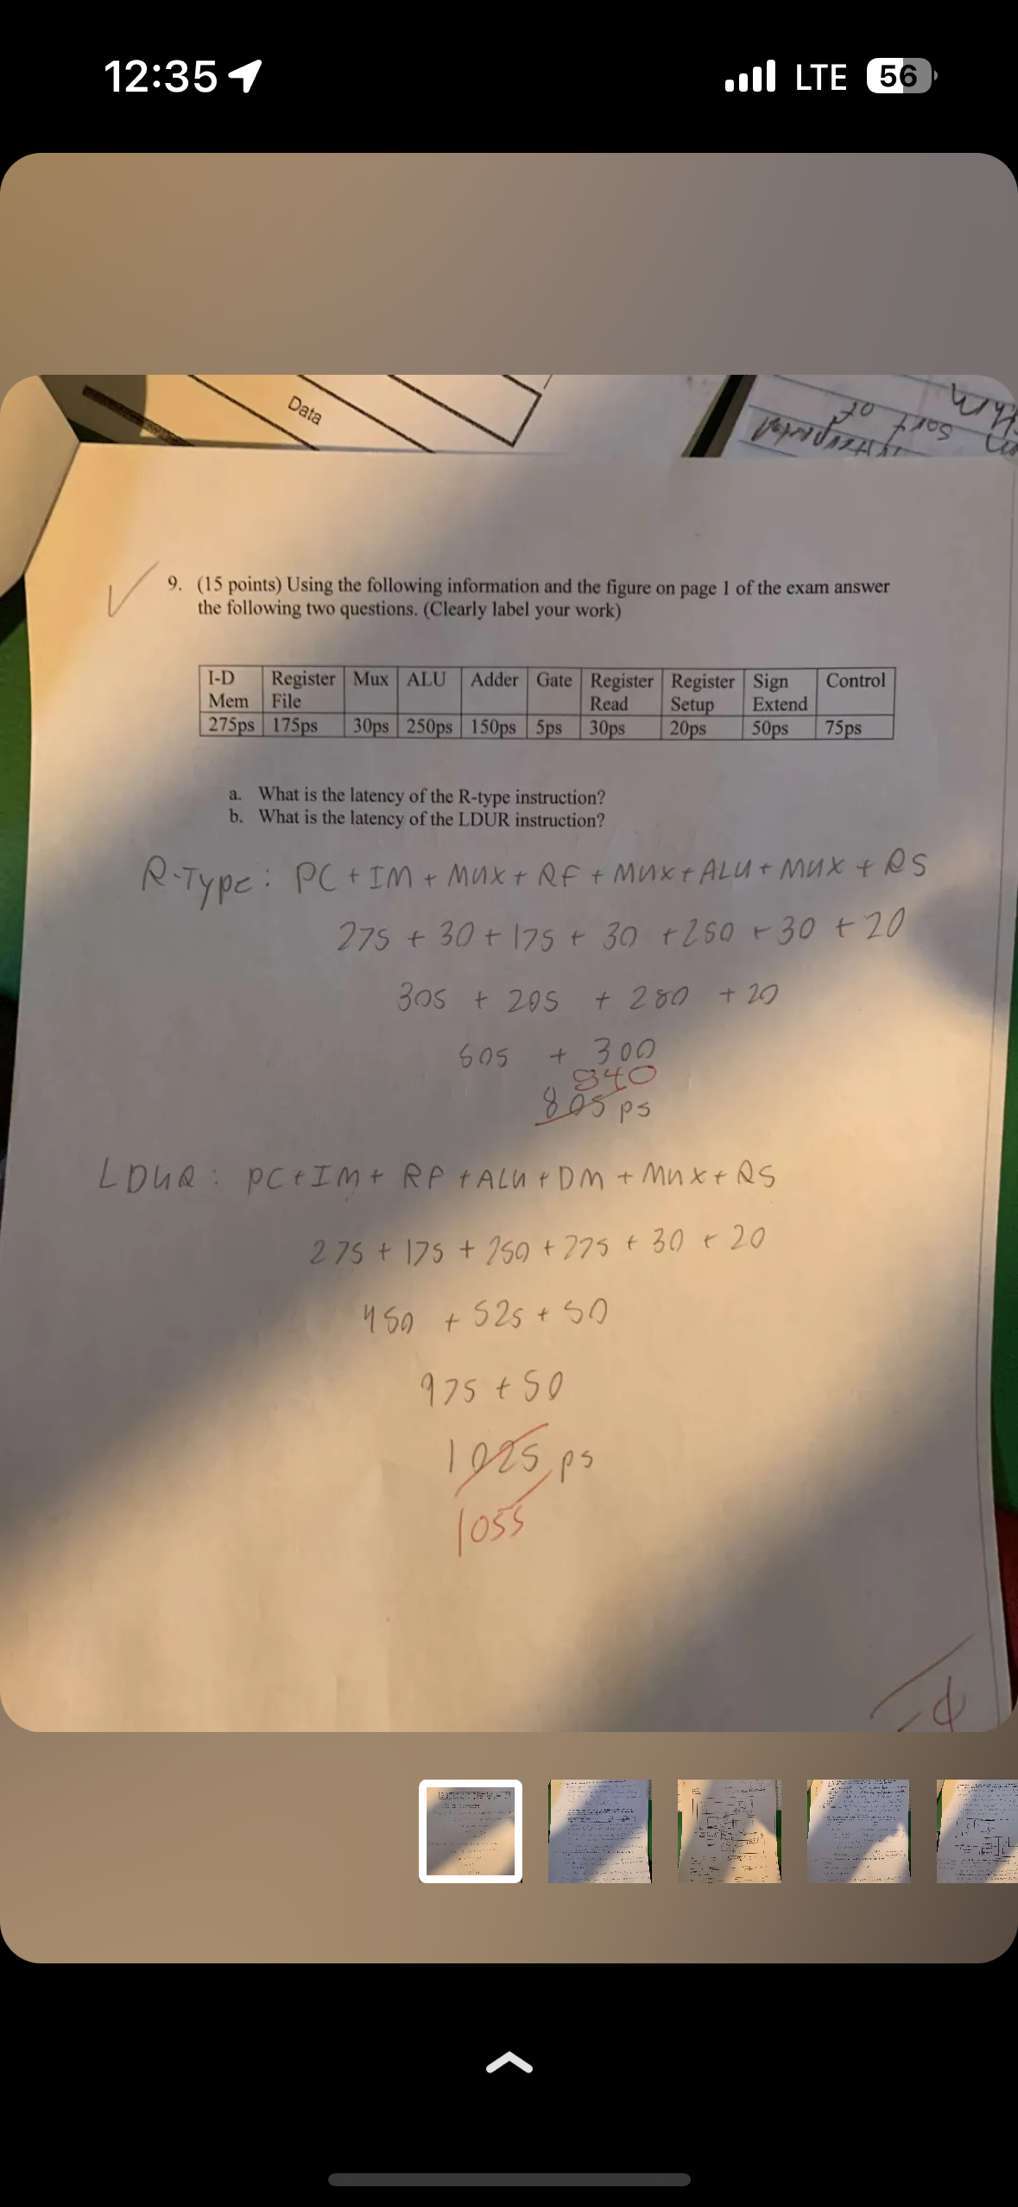 12:35
LTE 56
Data
to sort of
9. (15 points) Using the following information and the figure on page 1 of the exam answer
the following two questions. (Clearly label your work)
I-D Mem Register File Mux ALU Adder Gate Register Read Register Setup Sign Extend Control
275ps 175ps 30ps 250ps 150ps 5ps 30ps 20ps 50ps 75ps
a. What is the latency of the R-type instruction?
b. What is the latency of the LDUR instruction?
R-Type: PC + IM + Mux + RF + Mux + ALU + Mux + RS
275 + 30 + 175 + 30 + 250 + 30 + 20
305 + 205 + 280 + 20
505 + 300
840
805 ps
LDUR: PC + IM + RF + ALU + DM + Mux + RS
275 + 175 + 250 + 275 + 30 + 20
450 + 525 + 50
975 + 50
1025 ps
1055